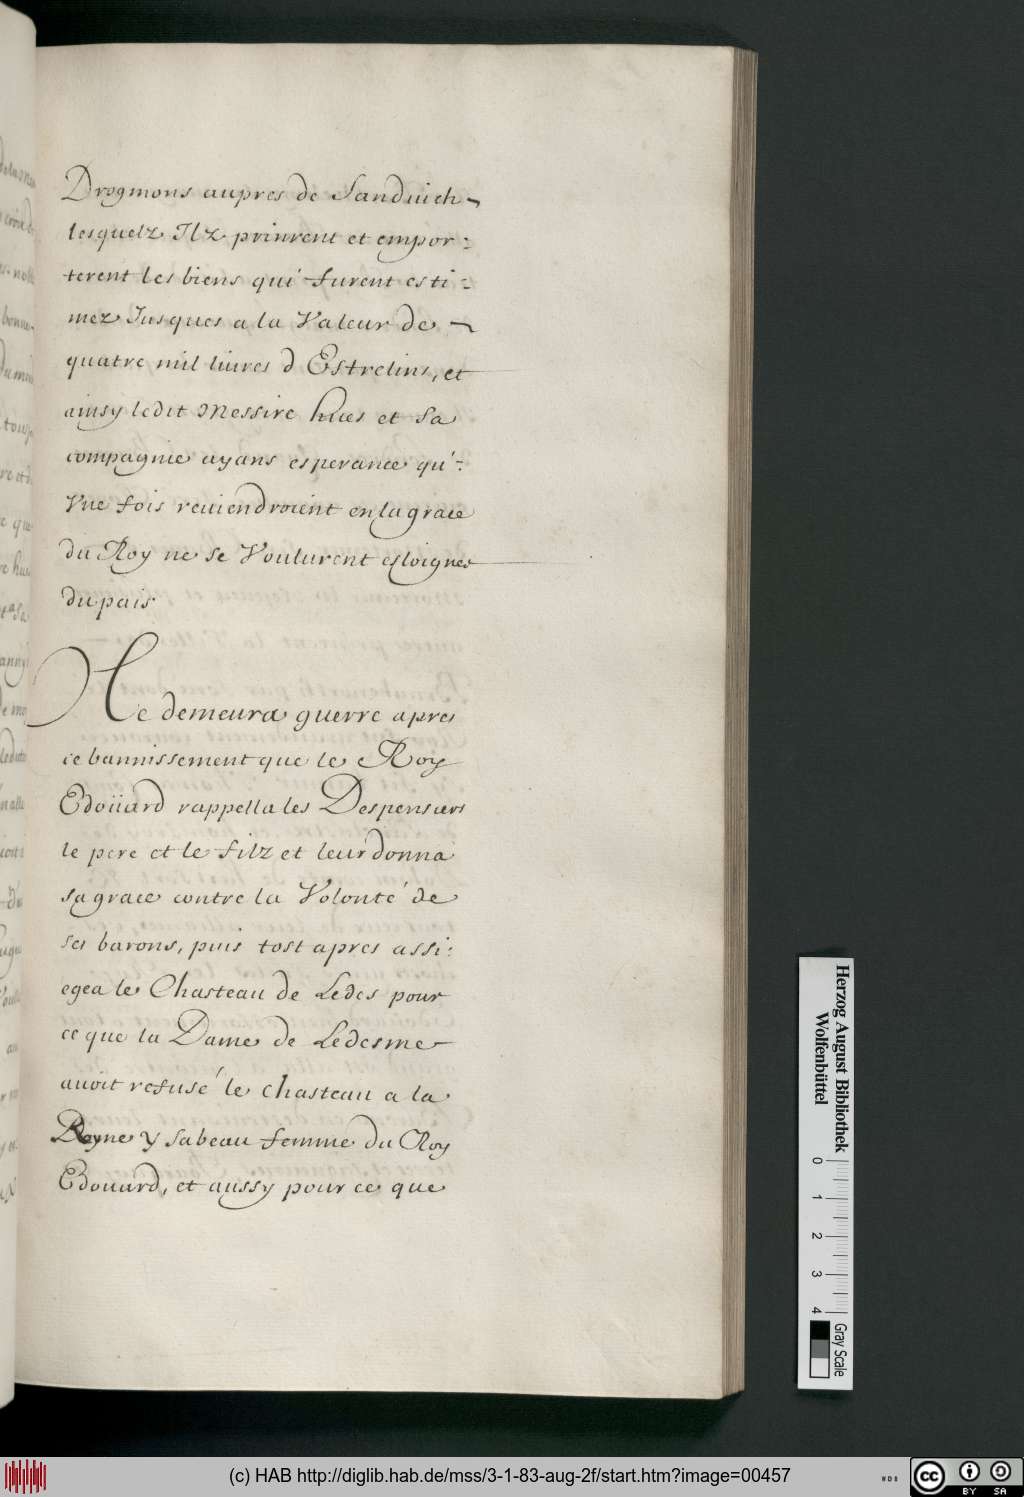 Drogmons aupres de Sanduich ¬
lesquelz Ilz prinrent et empor⸗
terent les biens qui furent esti⸗
mez Jusques a la Valeur de ¬
quatre mil liures d'Estrelins, et
ainsy ledit Messire hues et sa
compagnie ayans esperance qu'⸗
Vne fois reuiendroient en la grace
du Roy ne se Voulurent esloigner
du pais
Ne demeura guerre apres
ce bannissement que le Roy
Edoüard rappella les Despensiers
le pere et le filz et leur donna
sa grace contre la Volonté de
ses barons, puis tost apres assi⸗
egea le Chasteau de Ledes pour
ce que la Dame de Ledesme
auoit refusé le chasteau a la
Reyne ysabeau femme du Roy
Edouard, et aussy pour ce que
Herzog August Bibliothek
Wolfenbüttel
0 1 2 3 4
Gray Scale
(c) HAB http://diglib.hab.de/mss/3-1-83-aug-2f/start.htm?image=00457
WDB
cc BY SA